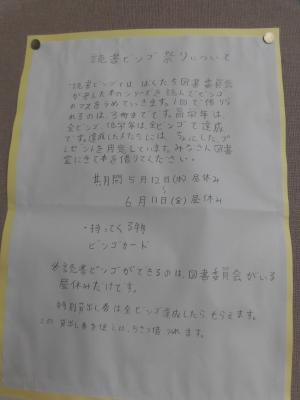 読書ビンゴ祭りについて
読書ビンゴとは、ぼくたち図書委員会
が選んだ本のシリーズを読んでビンゴ
のマスをうめていきます。1回で借りら
れるのは、3冊までです。高学年は、
全ビンゴ、低学年は、全ビンゴで達成
です。達成した人たちには、ちょっとした、プ
レゼントを用意しています。みなさん図書
室にきて本を借りてください。
期間 5月12日(水)昼休み
〜
6月11日(金)昼休み
・持ってくる物
ビンゴカード
※読書ビンゴができるのは、図書委員会がいる
昼休みだけです。
特別貸出し券は全ビンゴ達成したらもらえます。
この貸出し券を使えば、5さつ借りれます。